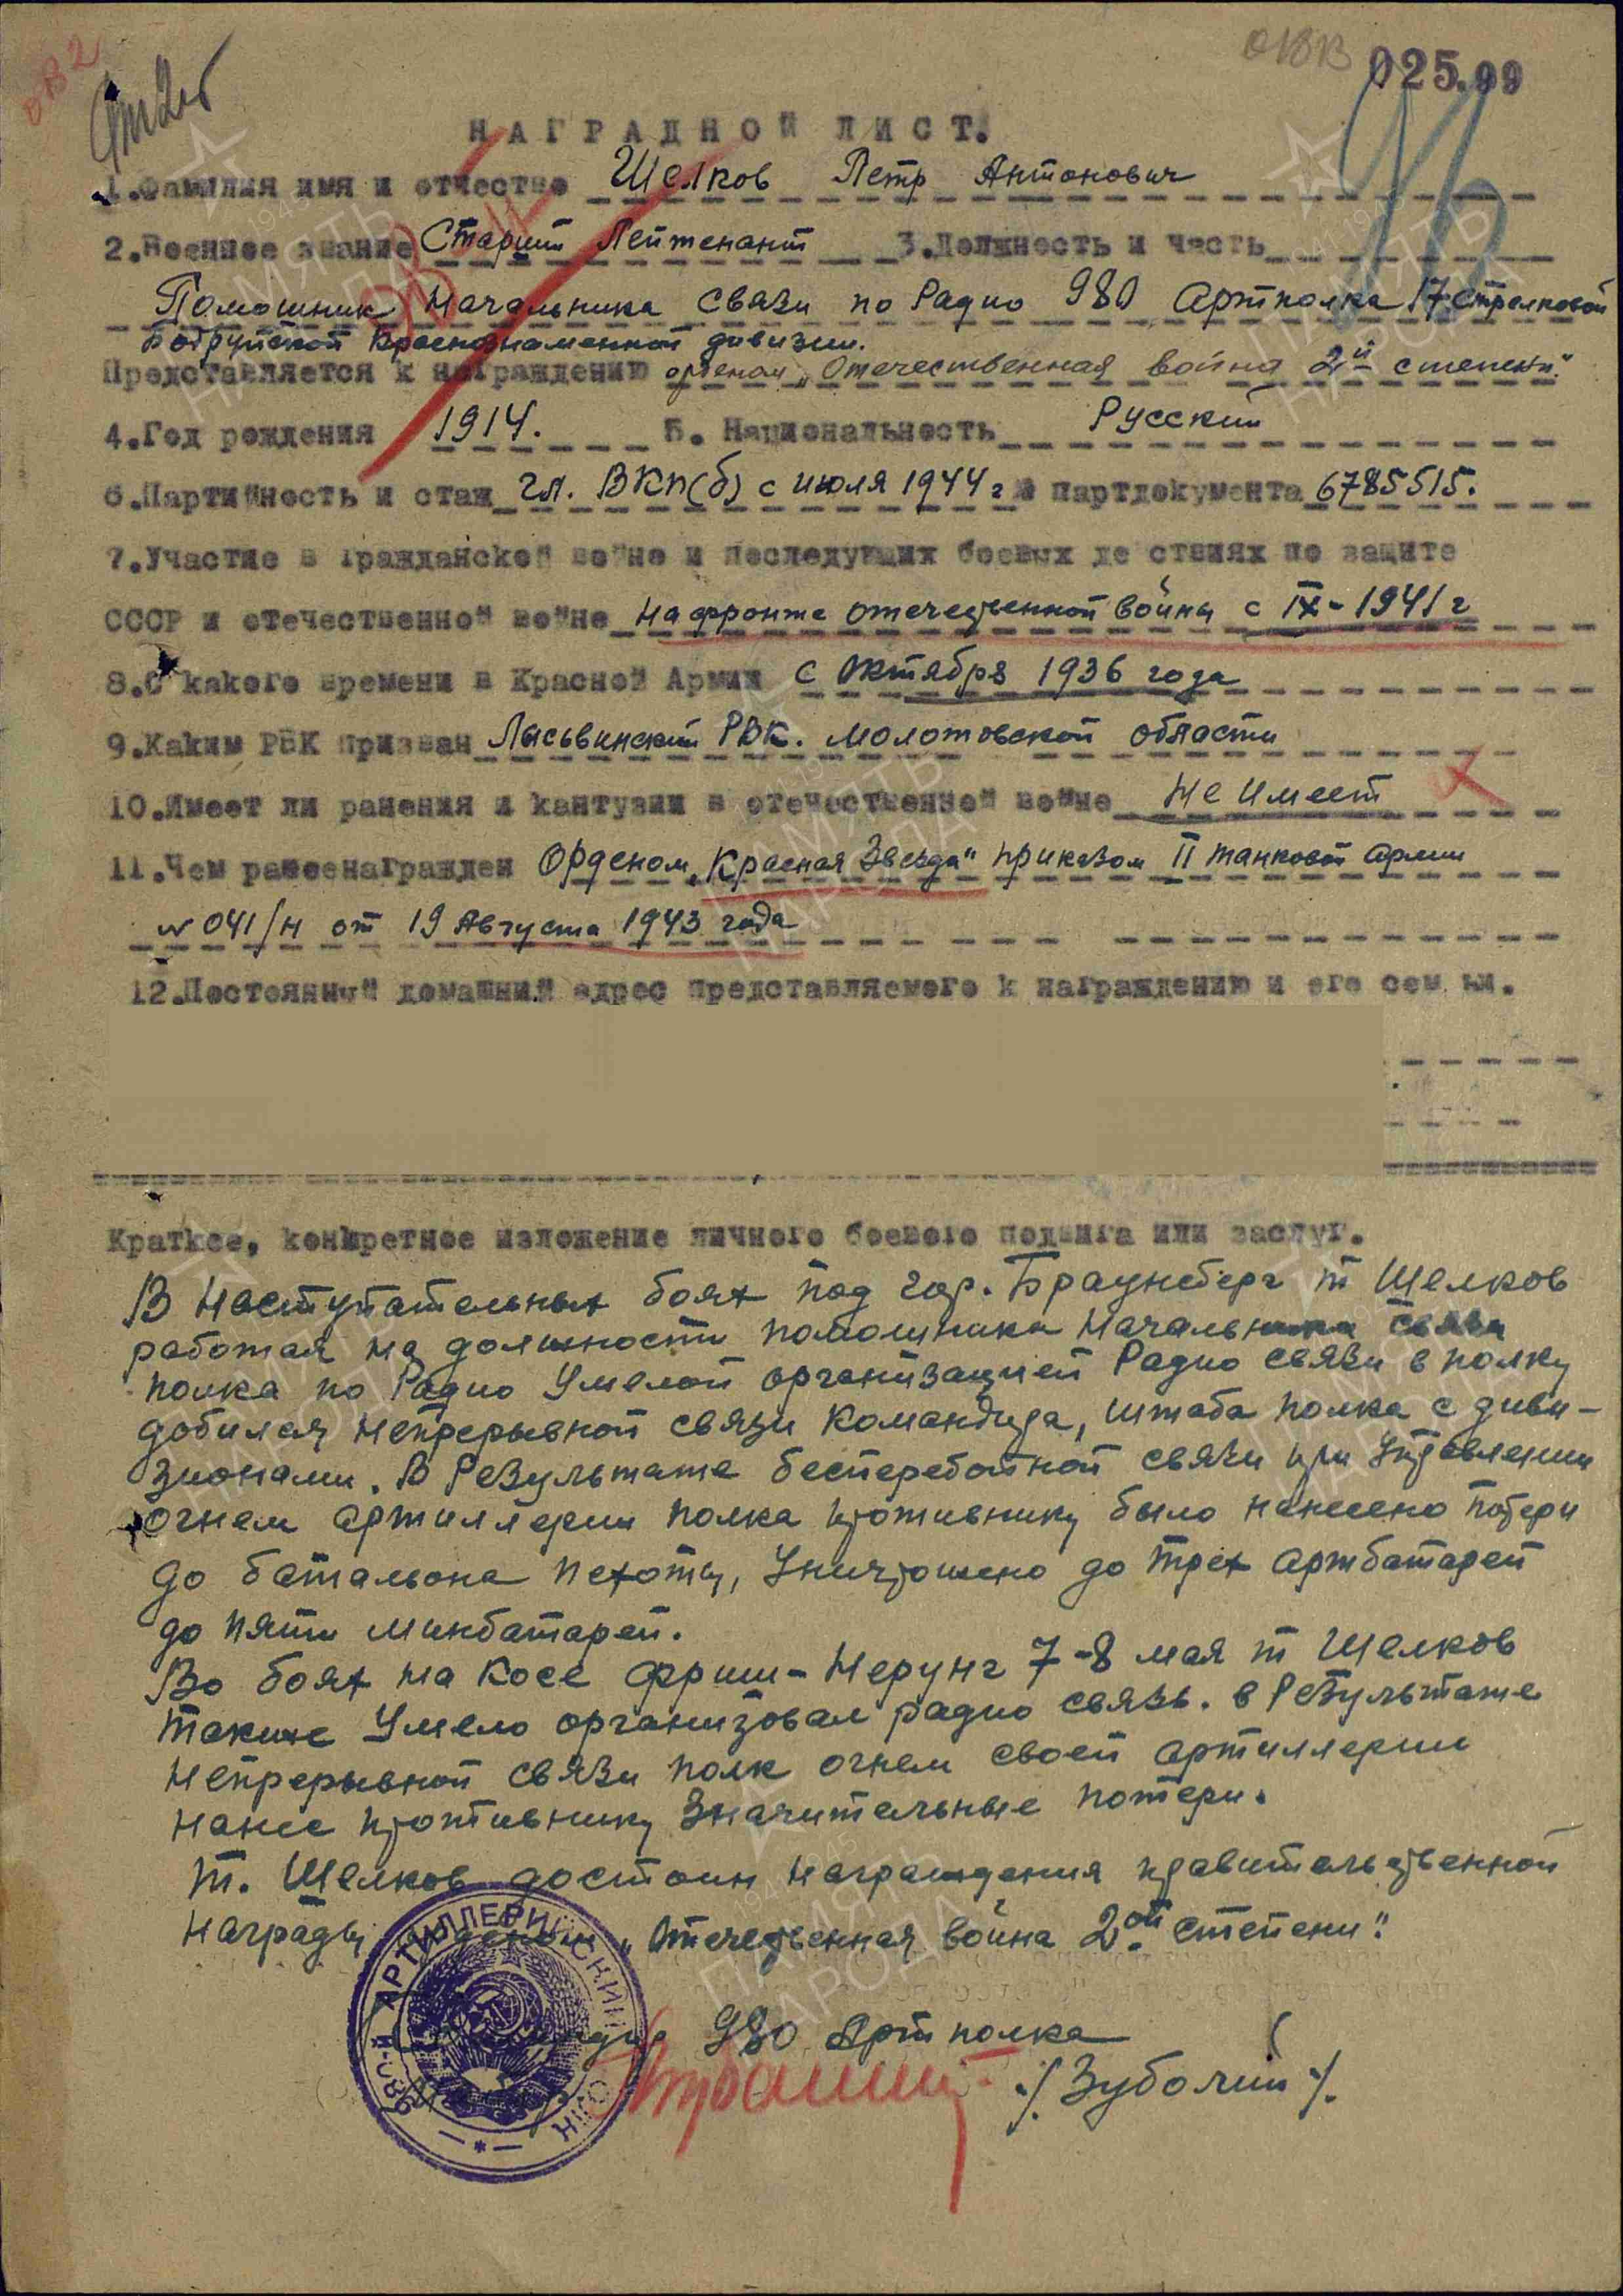 ОВ2
025.99
НАГРАДНОЙ ЛИСТ.
1.Фамилия имя и отчество Щелков Петр Антонович
2.Военное звание Старший Лейтенант 3.Должность и часть
Помошник Начальника Связи по Радио 980 Артполка 17 Стрелковой
Бобруйской Краснознаменной дивизии.
Представляется к награждению орденом „Отечественная война 2й степени"
4.Год рождения 1914. 5. Национальность Русский
6.Партийность и стаж чл. ВКП(б) с июля 1944 г № партдокумента 6785515.
7.Участие в Гражданской войне и последующих боевых де ствиях по защите
СССР и отечественной войне на фронте отечественной войны с IX-1941 г
8.С какого времени в Красной Армии с Октября 1936 года
9.Каким РВК призван Лысьвинский РВК. Молотовской области
10.Имеет ли ранения и кантузии в отечественной войне Не имеет
11.Чем ранеенагражден Орденом „Красная Звезда" приказом II танковой армии
№ 041/н от 19 Августа 1943 года
12.Постоянный домашний адрес представляемого к награждению и его сем ьи.
Краткое, конкретное изложение личного боевого подвига или заслуг.
В наступательных боях под гор. Браунсберг т Щелков
работая на должности помошника Начальника связи
полка по Радио Умелой организацией Радио связи в полку
добился непрерывной связи командира, штаба полка с диви-
зионами. В Результате бесперебойной связи при Управлении
огнем артиллерии полка противнику было нанесено потери
до батальона пехоты, Уничтожено до трех артбатарей
до пяти минбатарей.
Во боях на косе Фриш-Нерунг 7-8 мая т Щелков
также Умело организовал радио связь. в Результате
непрерывной связи полк огнем своей артиллерии
нанес противнику значительные потери.
т. Щелков достоин награждения правительственной
награды орденом „Отечественная война 2ой степени".
Командир 980 Артполка
/Зуболий/.
980-Й АРТИЛЛЕРИЙСКИЙ ПОЛК
ПАМЯТЬ НАРОДА
1941-1945